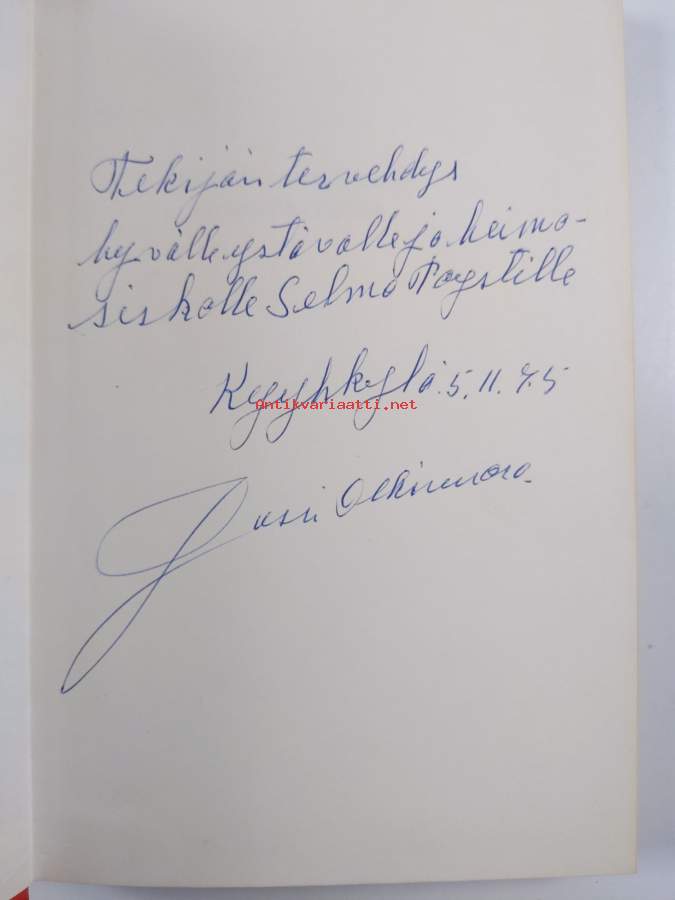 Tekijän tervehdys
hyvälle ystävälle ja heimo-
siskolle Selma Pöystille
Kyyhkylä 5.11.75
Antikvariaatti.net
Jussi Olkinuora